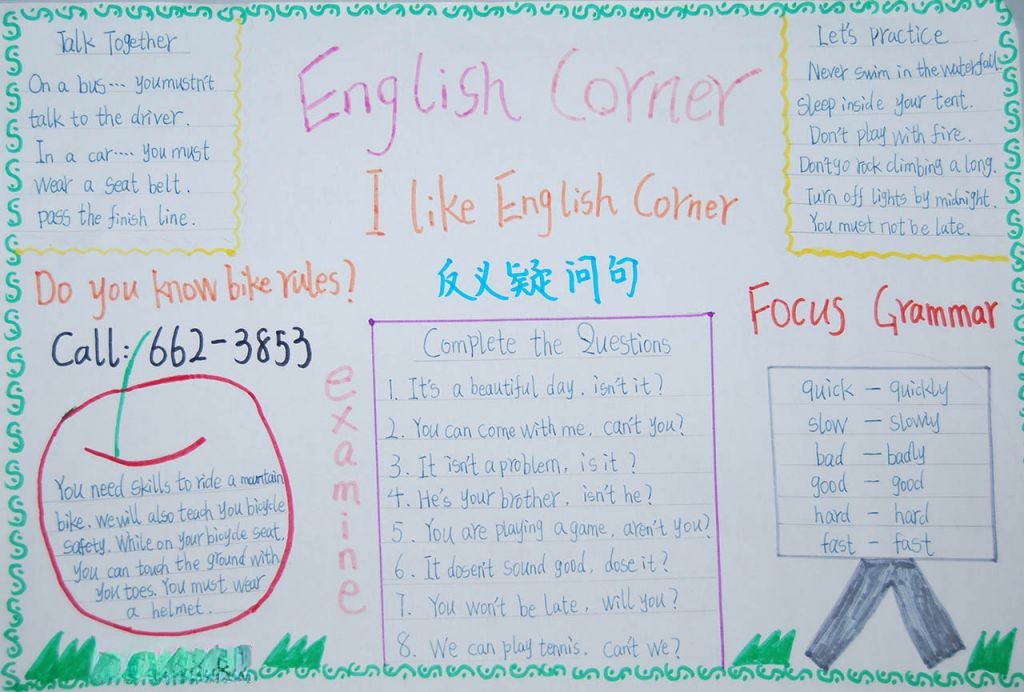 Talk Together
On a bus... you mustn't
talk to the driver.
In a car.... you must
wear a seat belt.
pass the finish line.
English Corner
I like English Corner
Let's practice
Never swim in the waterfall.
sleep inside your tent.
Don't play with fire.
Don't go rock climbing a long.
Turn off lights by midnight.
You must not be late.
Do you know bike rules?
Call: 662-3853
You need skills to ride a mantain
bike. we will also teach you bicycle
safety. While on your bicycle seat.
you can touch the ground with
you toes. You must wear
a helmet.
examine
反义疑问句
Complete the Questions
1. It's a beautiful day, isn't it?
2. You can come with me, can't you?
3. It isn't a problem, is it?
4. He's your brother, isn't he?
5. You are playing a game, aren't you?
6. It dosen't sound good, dose it?
7. You won't be late, will you?
8. We can play tennis, can't we?
Focus Grammar
quick - quickly
slow - slowly
bad - badly
good - good
hard - hard
fast - fast